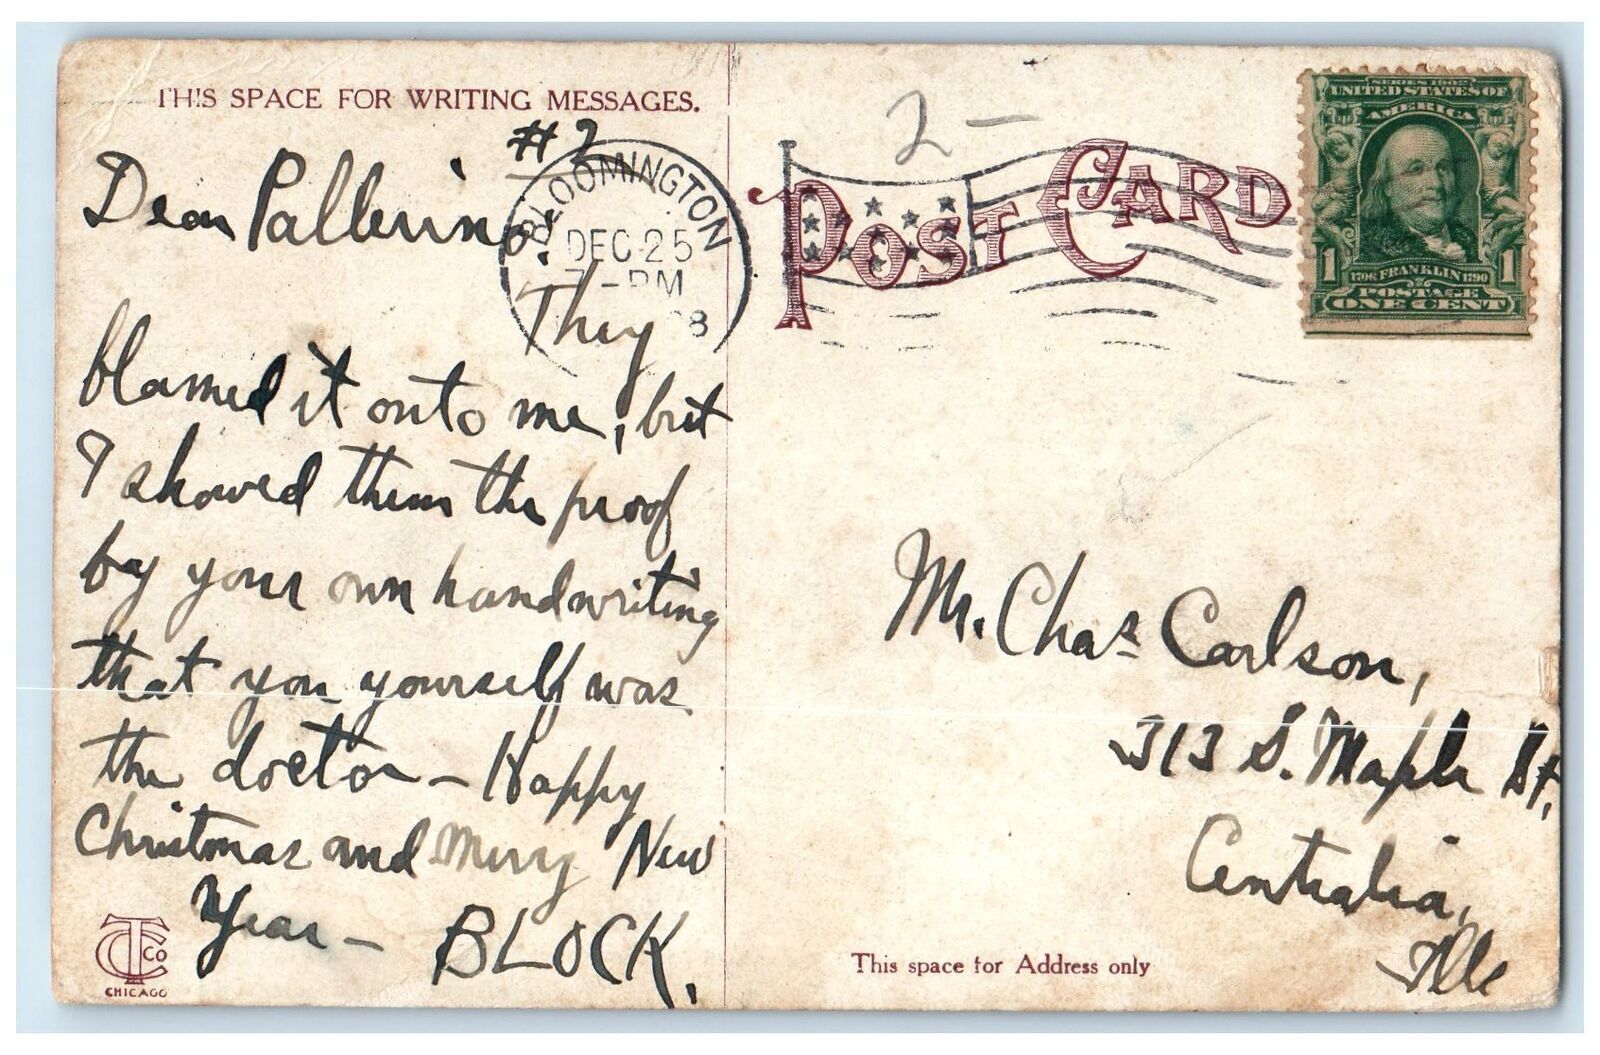 THIS SPACE FOR WRITING MESSAGES.
#2
Dear Pallerino:
They
blamed it onto me, but
I showed them the proof
by your own handwriting
that you yourself was
the doctor – Happy
Christmas and Merry New
Year – BLOCK.
CTCo
CHICAGO
BLOOMINGTON
DEC 25
7 – PM
8
2 –
POST CARD
SERIES 1902
UNITED STATES OF
AMERICA
1 1706 FRANKLIN 1790 1
POSTAGE
ONE CENT
Mr. Chas Carlson,
313 S. Maple St,
Centralia,
Ills
This space for Address only